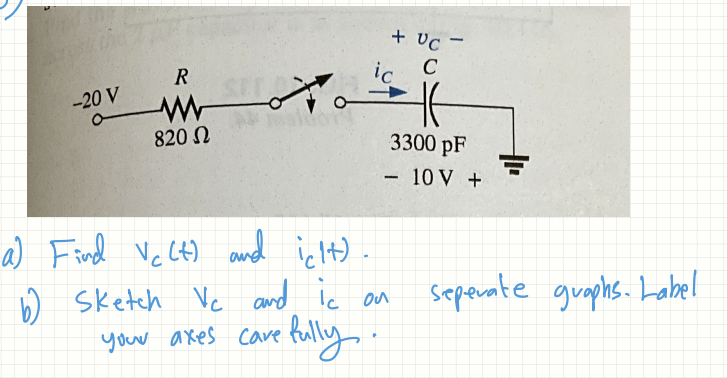 + υC −
R
iC
C
-20 V
820 Ω
3300 pF
− 10 V +
a) Find Vc(t) and ic(t).
b) Sketch Vc and ic on seperate graphs. Label
your axes carefully.